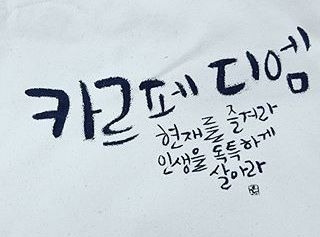 카르페 디엠
현재를 즐겨라
인생을 독특하게
살아라